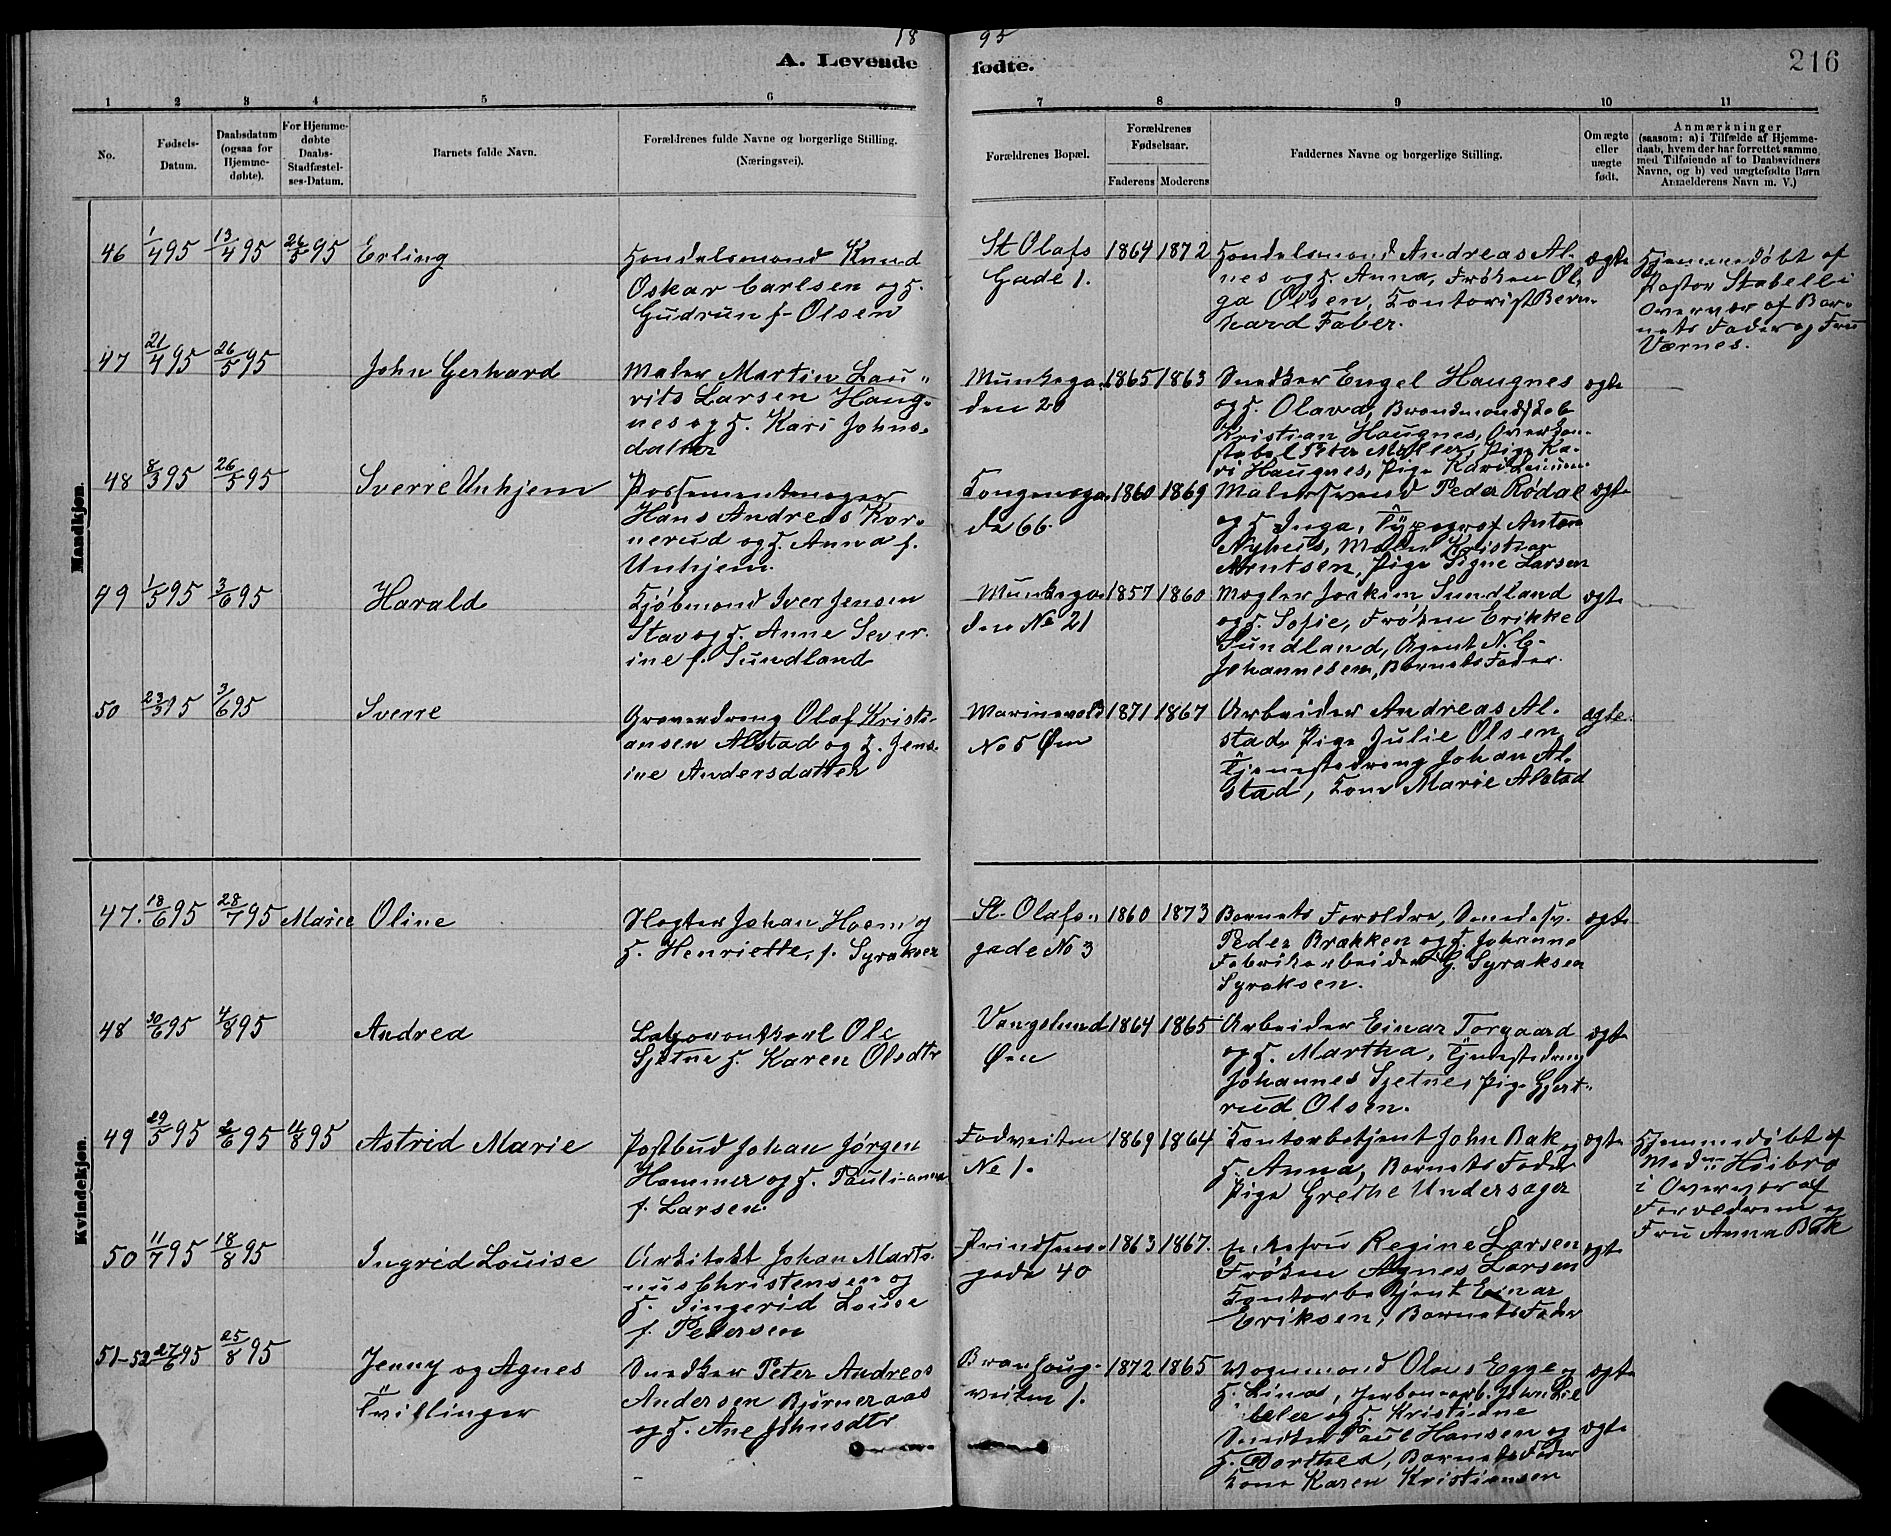 18 95
A. Levende fødte.
216
1 2 3 4 5 6 7 8 9 10 11
No.
Fødsels-Datum.
Daabsdatum (ogsaa for Hjemme-døbte).
For Hjemme-døbte Daabs-Stadfæstel-ses-Datum.
Barnets fulde Navn.
Forældrenes fulde Navne og borgerlige Stilling.
(Næringsvei).
Forældrenes Bopæl.
Forældrenes Fødselsaar.
Faderens Moderens
Faddernes Navne og borgerlige Stilling.
Om ægte eller uægte født.
Anmærkninger
(saasom: a) i Tilfælde af Hjemme-
daab, hvem der har forrettet samme,
med Tilføiende af to Daabsvidners
Navne, og b) ved uægtefødte Børn
Anmelderens Navn m. V.)
Mandkjøn.
46 1/4 95 13/4 95 26/5 95 Erling
Handelsmand Knud
Oskar Carlsen og H.
Gudrun f. Olsen
St Olafs
Gade 1.
1864 1872
Handelsmand Andreas Al-
nes og H. Anna, Frøken Ol-
ga Olsen, Kontorist Bern-
hard Faber.
ægte
Hjemmedøbt af
Pastor Stabell i
Overvær af Bar-
nets Fader og Fru
Værnes.
47 21/4 95 26/5 95 John Gerhard
Maler Martin Lau-
rits Larsen Haug-
nes og H. Kari Johns-
datter
Munkega-
den 20
1865 1863
Snedker Engel Haugnes
og H. Olava, Brandmandskab
Kristian Haugnes, Overkon-
stabel Peter Møller, Pige Ka-
ri Haugnes, Pige Kari
ægte
48 8/3 95 26/5 95 Sverre Unhjem
Possementmager
Hans Andreas Kor-
nerud og H. Anna f.
Unhjem.
Kongensga-
de 66.
1860 1869
Malersvend Peder Rødal
og H. Inga, Typograf Anton
Nyhus, Maler Kristian
Arntsen, Pige Signe Larsen
ægte
49 1/5 95 3/6 95 Harald
Kjøbmand Iver Jensen
Stav og H. Anne Sever-
ine f. Sundland
Munkega-
den No 21
1857 1860
Mægler Joakim Sundland
og H. Sofie, Frøken Erikke
Sundland, Agent N. C.
Johannesen, Barnets Fader.
ægte
50 23/3 95 3/6 95 Sverre
Graverdreng Olaf Kristi-
ansen Alstad og H. Jens-
ine Andersdatter
Marinevold
No 5 Øen
1871 1867
Arbeider Andreas Al-
stad, Pige Julie Olsen,
Tjenestedreng Johan Al-
stad, Kone Marie Alstad
ægte.
Kvindekjøn.
47. 18/6 95 28/7 95 Marie Oline
Slagter Johan Hoem og
H. Henriette, f. Syraksen
St. Olafs-
gade No 3
1860 1873
Barnets Forældre, Smedesv.
Peder Brækken og H. Johanne
Fabrikarbeider G. Syraksen
Syraksen.
ægte
48 30/6 95 4/8 95 Andrea
Laborantkarl Ole
Sjetne H. Karen Olsdtr
Vangslund
Øen
1864 1865
Arbeider Einar Torgaard
og H. Martha, Tjenestedreng
Johannes Sjetne, Pige Gjert-
rud Olsen.
ægte
49 29/5 95 2/6 95 11/8 95 Astrid Marie
Postbud Johan Jørgen
Hammer og H. Pauli-anna
f. Larsen.
Fadveiten
No 1.
1869 1864
Kontorbetjent John Bak og
H. Anna, Barnets Fader
Pige Grethe Undersager
ægte
Hjemmedøbt af
Madm Høibro
i Overvær af
Forældrene og
Fru Anna Bak
50 11/7 95 18/8 95 Ingrid Louise
Arkitekt Johan Marti-
nus Christensen og
H. Louise
f. Petersen
Prindsens-
gade 40
1863 1867.
Enkefru Regine Larsen
Frøken Agnes Larsen
Kontorbetjent Einar
Eriksen, Barnets Fader
ægte
51-52 27/6 95 25/8 95 Jenny og Agnes
Tvillinger
Snedker Peter Andreas
Andersen Bjørneraas
og H. Ane Johnsdtr
Branhaug-
veiten 1.
1872 1865
Vognmand Olaus Egge og
H. Lina, Jernban-arb. John
og H. Kristianne
Snedker Paul Hansen og
H. Dorthea, Barnets Fader
Kone Karen Kristiansen
ægte
ægte